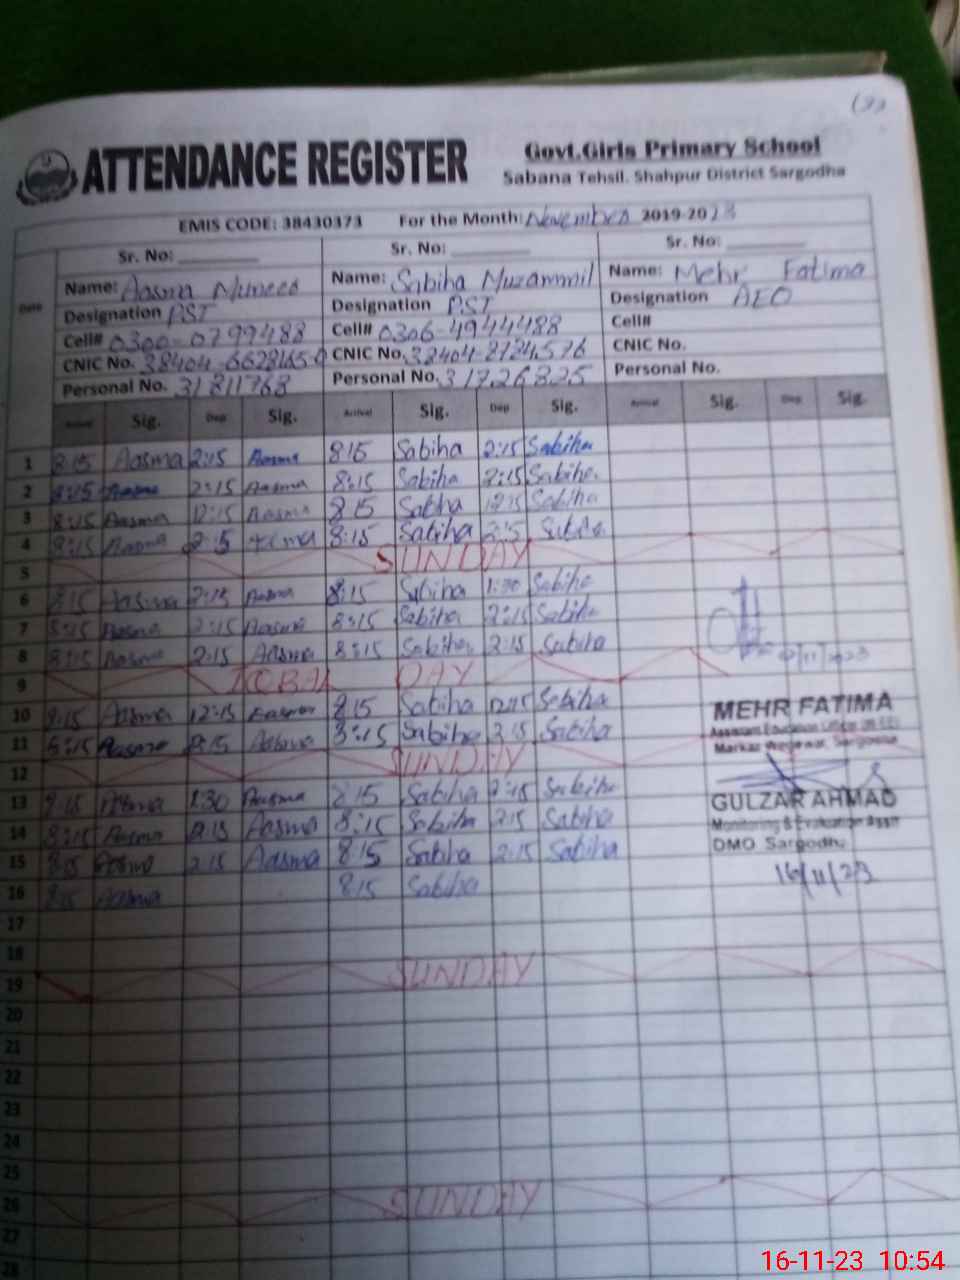 ATTENDANCE REGISTER
Govt.Girls Primary School
Sabana Tehsil. Shahpur District Sargodha
EMIS CODE: 38430373 For the Month: November 2019-2023
Date
Sr. No: Sr. No: Sr. No:
Name: Aasma Name: Sabiha Muzammil Name: Mehr Fatima
Designation PST Designation PST Designation AEO
Cell# 0300-0799488 Cell# 0306-4944488 Cell#
CNIC No. CNIC No. CNIC No.
Personal No. 31811768 Personal No. 31726825 Personal No.
Arrival Sig. Dep Sig. Arrival Sig. Dep Sig. Arrival Sig. Dep Sig.
1 8:15 Aasma 2:15 Aasma 8:15 Sabiha 2:15 Sabiha
2 8:15 Aasma 2:15 Aasma 8:15 Sabiha 2:15 Sabiha
3 8:15 Aasma 12:15 Aasma 8:15 Sabiha 12:15 Sabiha
4 8:15 Aasma 8:15 Sabiha
5 SUNDAY
6 8:15 Aasma 2:15 Aasma 8:15 Sabiha 1:30 Sabiha
7 8:15 Aasma 2:15 Aasma 8:15 Sabiha 2:15 Sabiha
8 8:15 Aasma 2:15 Aasma 8:15 Sabiha 2:15 Sabiha
9 DAY
10 8:15 Aasma 12:15 8:15 Sabiha 12:15 Sabiha
11 8:15 Aasma 2:15 Aasma 8:15 Sabiha 2:15 Sabiha
MEHR FATIMA
Assistant Education Officer
Markaz Sargodha
12 SUNDAY
13 8:15 Aasma 1:30 Aasma 8:15 Sabiha 2:15 Sabiha
GULZAR AHMAD
14 8:15 Aasma 2:15 Aasma 8:15 Sabiha 2:15 Sabiha
Monitoring & Evaluation Asstt
DMO Sargodha
15 8:15 Aasma 2:15 Aasma 8:15 Sabiha 2:15 Sabiha
16/11/23
16 8:15 Aasma 8:15 Sabiha
17
18
19 SUNDAY
20
21
22
23
24
25
26 SUNDAY
27
28
16-11-23 10:54